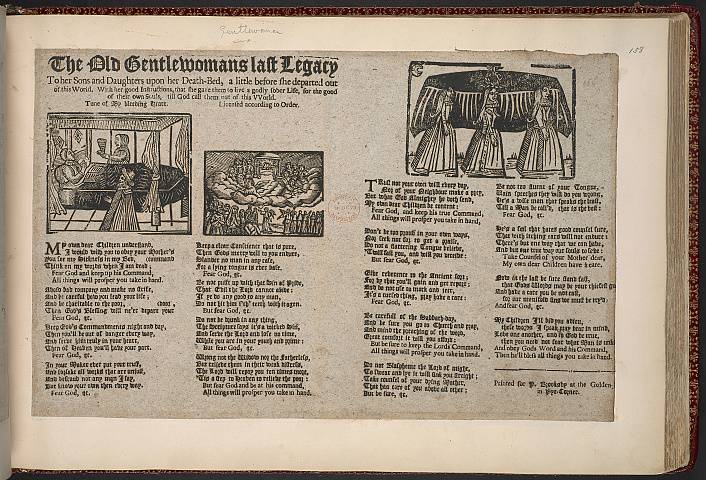 Gentlewoman
158
The Old Gentlewomans last Legacy
To her Sons and Daughters upon her Death-Bed, a little before she departed out
of this World. With her good Instructions, that she gave them to live a godly sober Life, for the good
of their own Souls, till God call them out of this World.
Tune of My bleeding Heart. Licensed according to Order.
MY own dear Children understand,
I would wish you to obey your Mother's command
You see my Sickness in my Bed,
Think on my words when I am dead;
Fear God and keep his Command,
All things will prosper you take in hand.
Shun bad company and live no strife,
And be careful how you lead your life;
And be charitable to the poor, door,
Then God's Blessing will ne'er depart your
Fear God, &c.
Keep God's Commandments night and day,
Then you'll be out of danger every way,
And serve him truly in your heart,
Then of Heaven you'll have your part.
Fear God, &c.
In your Maker ever put your trust,
And forsake all works that are unjust,
And defraud not any man I say,
But know your own then every way.
Fear God, &c.
Keep a clear Conscience that is pure,
Then Gods mercy will to you endure,
Slander no man in any case,
For a lying tongue is ever base.
Fear God, &c.
Be not puft up with that Sin of Pride,
That Evil the Lord cannot abide:
If ye do any good to any man,
Do not hit him i'th' teeth with it again.
But fear God, &c.
Do not be drunk in any thing,
The Scripture says it's a wicked Sin,
And serve the Lord and lose no time,
While you are in your youth and prime:
Fear God, &c.
Wrong not the Widow nor the Fatherless,
But relieve them in their weak distress,
The Lord will repay you ten times more,
'Tis a step to Heaven to relieve the poor;
But fear God and be at his command,
All things will prosper you take in hand.
TRust not your own will every day,
Nor of your Neighbour make a prey,
But what God Almighty he doth send,
My own dear Children be content:
Fear God, and keep his true Command,
All things will prosper you take in hand.
Don't be too proud in your own ways,
Nor seek nor to get a praise,
Do not a flattering Tongue believe,
'Twill fool you, and will you deceive:
But fear God, &c.
Give reverence to the Ancient sort;
For by that you'll gain and get report:
And be not rude to mock and jeer,
It's a cursed thing, pray have a care:
Fear God, &c.
Be careful of the Sabbath-day,
And be sure you go to Church and pray,
And mind the preaching of the word,
Great comfort it will you afford:
But be sure to keep the Lords Command,
All things will prosper you take in hand.
Do not Blaspheme the Lord of might,
To swear and lye it will sink you streight;
Take counsel of your dying Mother,
That had care of you above all other:
But be sure, &c.
Be not too fluent of your Tongue,
Vain speeches they will do you wrong,
He's a wise man that speaks the least,
Till a Man be call'd, that is the best:
Fear God, &c.
He's a fool that hates good counsel sure,
That with itching ears will not endure:
There's but one way that we can have,
And but one true way our souls to save:
Take Counsel of your Mother dear,
My own dear Children have a care.
Now at the last be sure stand fast,
that Gods Word may be your chiefest
And have a care you be not cast,
for our manifold sins we must be try'd.
And fear God, &c.
My Children I'll bid you adieu,
their words I speak pray bear in mind,
Love one another, and to God be true,
then you need not fear what Man is
And obey Gods Word and his Command,
Then he'll bless all things you take in hand.
Printed for P. Brooksby at the Golden
in Pye-Corner.